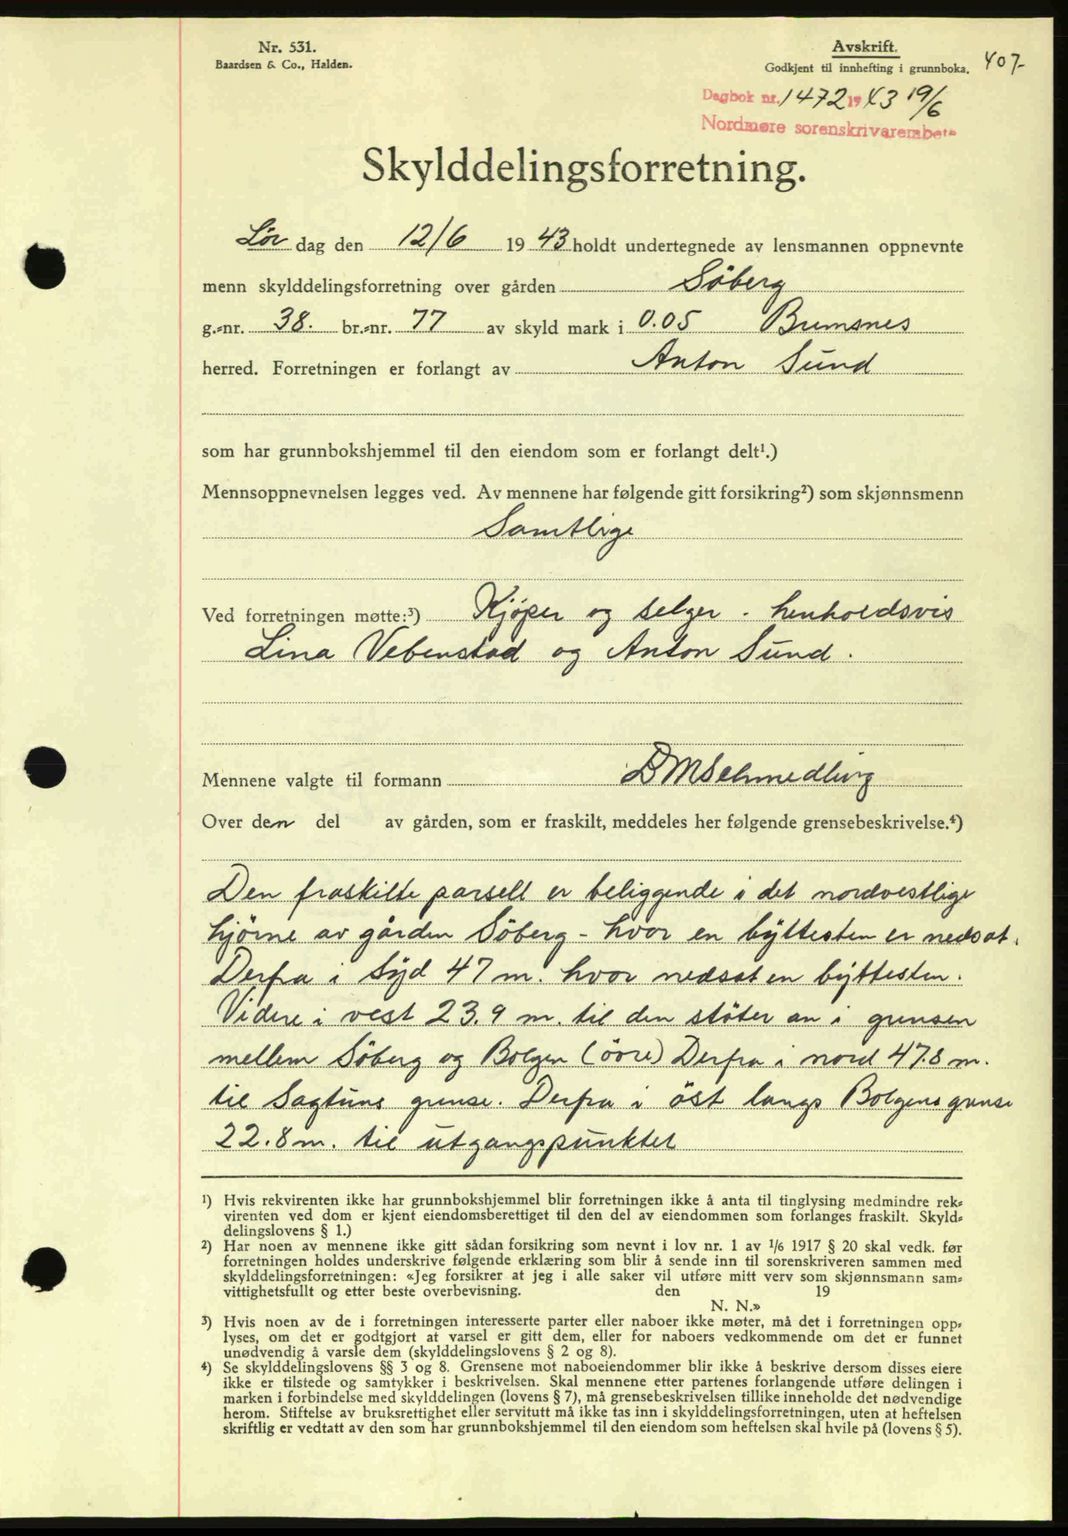 Nr. 531.
Baardsen & Co., Halden.
Avskrift.
Godkjent til innhefting i grunnboka.
407-
Dagbok nr. 1472 1943 19/6
Nordmøre sorenskrivarembete
Skylddelingsforretning.
Lør dag den 12/6 19 43 holdt undertegnede av lensmannen oppnevnte
menn skylddelingsforretning over gården Söberg
g.-nr. 38. br.-nr. 77 av skyld mark i 0.05 Bremsnes
herred. Forretningen er forlangt av Anton Sund
som har grunnbokshjemmel til den eiendom som er forlangt delt¹.)
Mennsoppnevnelsen legges ved. Av mennene har følgende gitt forsikring²) som skjønnsmenn
Samtlige
Ved forretningen møtte:³) Kjøper og selger - henholdsvis
Lina Vebenstad og Anton Sund.
Mennene valgte til formann D M Schmedling
Over den del av gården, som er fraskilt, meddeles her følgende grensebeskrivelse.⁴)
Den fraskilte parsell er beliggende i det nordvestlige
hjørne av gården Söberg - hvor en byttesten er nedsat.
Derfra i Syd 47 m. hvor nedsat en byttesten.
Videre i vest 23.9 m. til den støter an i grensen
mellem Söberg og Bolgen (övre) Derfra i nord 47.8 m.
til Sagtuns grense. Derfra i öst langs Bolgens grense
22.8 m. til utgangspunktet
¹) Hvis rekvirenten ikke har grunnbokshjemmel blir forretningen ikke å anta til tinglysing medmindre rek-
virenten ved dom er kjent eiendomsberettiget til den del av eiendommen som forlanges fraskilt. Skyld-
delingslovens § 1.)
²) Har noen av mennene ikke gitt sådan forsikring som nevnt i lov nr. 1 av 1/6 1917 § 20 skal vedk. før
forretningen holdes underskrive følgende erklæring som blir å sende inn til sorenskriveren sammen med
skylddelingsforretningen: «Jeg forsikrer at jeg i alle saker vil utføre mitt verv som skjønnsmann sam-
vittighetsfullt og etter beste overbevisning. den 19
N. N.»
³) Hvis noen av de i forretningen interesserte parter eller naboer ikke møter, må det i forretningen opp-
lyses, om det er godtgjort at varsel er gitt dem, eller for naboers vedkommende om det er funnet
unødvendig å varsle dem (skylddelingslovens § 2 og 8).
⁴) Se skylddelingslovens §§ 3 og 8. Grensene mot naboeiendommer blir ikke å beskrive dersom disses eiere
ikke er tilstede og samtykker i beskrivelsen. Skal mennene etter partenes forlangende utføre delingen i
marken i forbindelse med skylddelingen (lovens § 7), må grensebeskrivelsen tillike inneholde det nødvendige
herom. Stiftelse av bruksrettighet eller servitutt må ikke tas inn i skylddelingsforretningen, uten at heftelsen
skriftlig er vedtatt av den som har grunnbokshjemmel til den eiendom som heftelsen skal hvile på (lovens § 5).